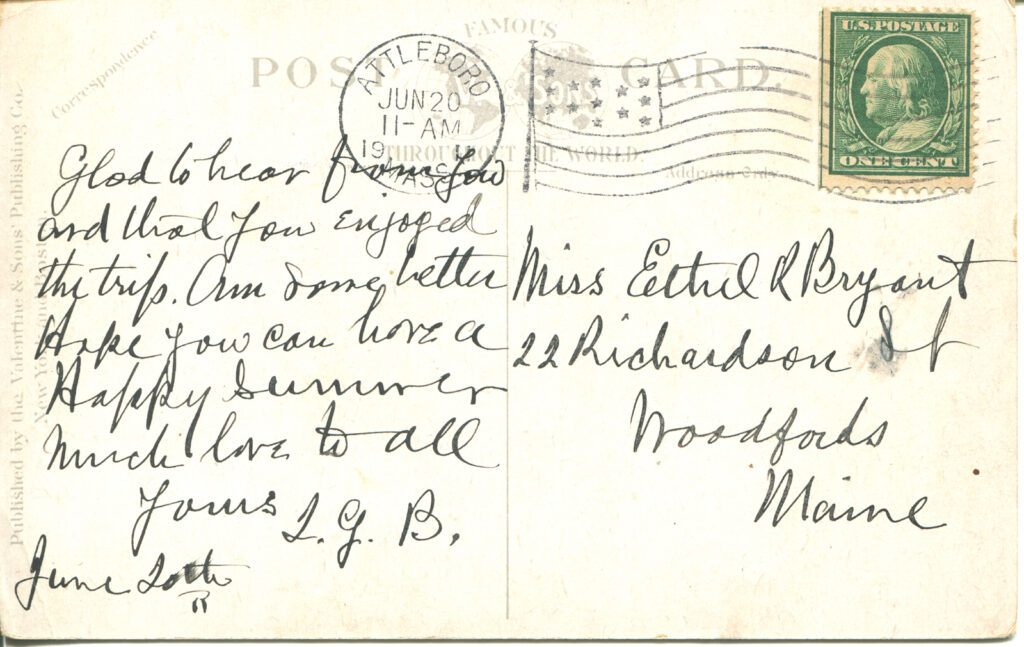 Correspondence
FAMOUS
POST CARD.
& Sons
THROUGHOUT THE WORLD.
Address Only.
ATTLEBORO
JUN 20
11-AM
19
MASS
U.S. POSTAGE
ONE CENT
Published by the Valentine & Sons' Publishing Co.
New York
Glad to hear from you
and that you enjoyed
the trip. Am some better
Hope you can have a
Happy summer
Much love to all
Yours
L. G. B.
June 20th
Miss Ethel R Bryant
22 Richardson St
Woodfords
Maine